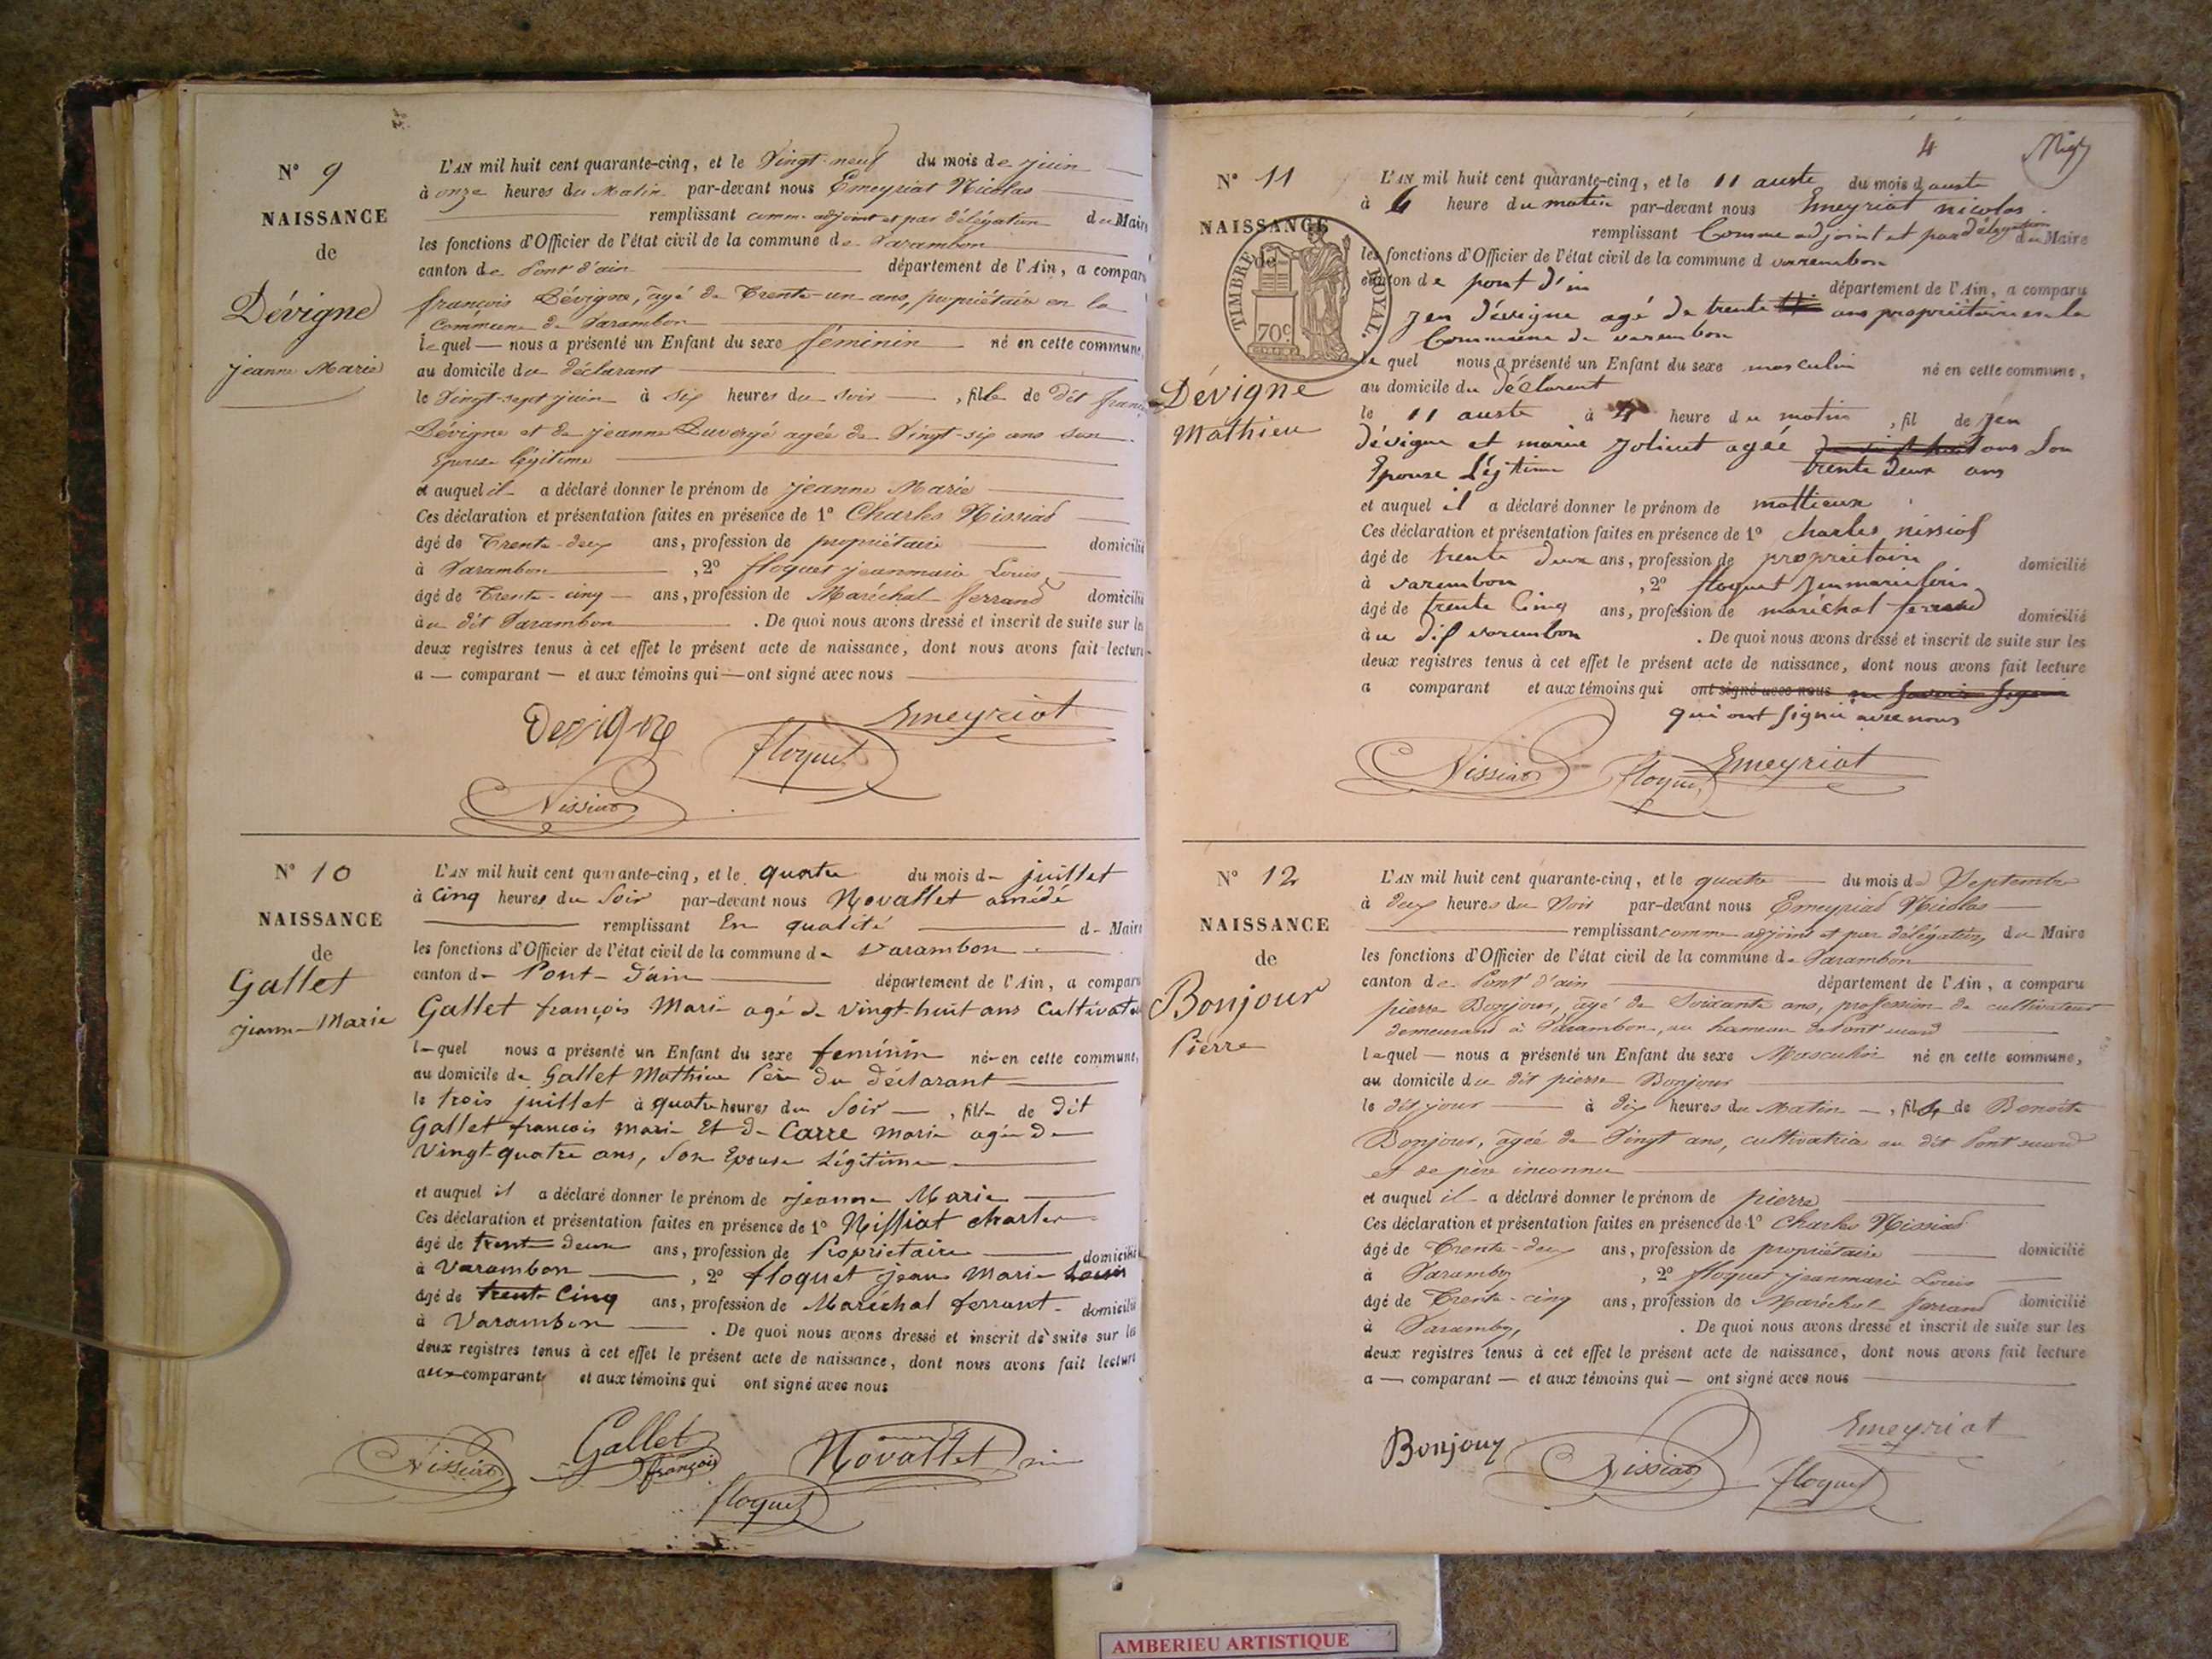 N° 9
NAISSANCE
de
Dévigne
jeanne Marie
L'AN mil huit cent quarante-cinq, et le Vingt-neuf du mois de juin
à onze heures du Matin par-devant nous Emeyriat Nicolas
remplissant comme adjoint et par délégation du Maire
les fonctions d'Officier de l'état civil de la commune de Varambon
canton de Pont d'ain département de l'Ain, a comparu
françois Dévigne, âgé de Trente-un ans, propriétaire en la
Commune de Varambon
lequel nous a présenté un Enfant du sexe féminin né en cette commune,
au domicile du déclarant
le Vingt-sept juin à six heures du soir, fille de dit franç
Dévigne et de jeanne agée de Vingt-six ans son
Epouse légitime
et auquel il a déclaré donner le prénom de jeanne Marie
Ces déclaration et présentation faites en présence de 1° Charles Nissiat
âgé de Trente-deux ans, profession de propriétaire domicilié
à Varambon, 2° floquet jeanmarie Louis
âgé de Trente-cinq ans, profession de Maréchal ferrand domicilié
au dit Varambon. De quoi nous avons dressé et inscrit de suite sur les
deux registres tenus à cet effet le présent acte de naissance, dont nous avons fait lecture
a — comparant — et aux témoins qui — ont signé avec nous
Devigne
Emeyriat
floquet
Nissiat
N° 10
NAISSANCE
de
Gallet
jeanne-Marie
L'AN mil huit cent quarante-cinq, et le quatre du mois d- juillet
à Cinq heures du Soir par-devant nous Novallet amédé
remplissant En qualité d- Maire
les fonctions d'Officier de l'état civil de la commune de Varambon
canton d- Pont-d'ain département de l'Ain, a comparu
Gallet françois Marie agé de vingt-huit ans Cultivateur
l-quel nous a présenté un Enfant du sexe feminin né-en cette commune,
au domicile de Gallet Mathieu Père du déclarant
le trois juillet à quatre heures du Soir —, fille de dit
Gallet françois marie Et de Carre Marie agée de
Vingt-quatre ans, Son Epouse Légitime
et auquel il a déclaré donner le prénom de jeanne Marie
Ces déclaration et présentation faites en présence de 1° Nissiat charles
âgé de trente deux ans, profession de Proprietaire domicilié
à Varambon, 2° floquet jean Marie Louis
âgé de trente Cinq ans, profession de Maréchal ferrant domicilié
à Varambon. De quoi nous avons dressé et inscrit de suite sur les
deux registres tenus à cet effet le présent acte de naissance, dont nous avons fait lecture
aux comparants et aux témoins qui ont signé avec nous
Nissiat
Gallet
françois
Novallet
floquet
4
N° 11
NAISSANCE
de
TIMBRE ROYAL.
70c
Dévigne
Mathieu
L'AN mil huit cent quarante-cinq, et le 11 auste du mois d auste
à 4 heure du matin par-devant nous Emeyriat nicolas
remplissant Comme adjoint et par délégation du Maire
les fonctions d'Officier de l'état civil de la commune d varembon
canton de pont d'in département de l'Ain, a comparu
jen dévigne agé de trente ans propriétaire en la
Commune de varembon
le quel nous a présenté un Enfant du sexe masculin né en cette commune,
au domicile du déclarent
le 11 auste à 4 heure du matin, fil de jen
dévigne et marie jolinet agée ans Son
Epouse Légitime trente deux ans
et auquel il a déclaré donner le prénom de mattieux
Ces déclaration et présentation faites en présence de 1° charles nissiat
âgé de trente deux ans, profession de propriétaire domicilié
à varembon, 2° floquet
âgé de trente Cinq ans, profession de maréchal ferrand domicilié
à u dit varembon. De quoi nous avons dressé et inscrit de suite sur les
deux registres tenus à cet effet le présent acte de naissance, dont nous avons fait lecture
a comparant et aux témoins qui ont signé avec nous
qui ont signié avec nous
Nissiat
floquet
Emeyriat
N° 12
NAISSANCE
de
Bonjour
Pierre
L'AN mil huit cent quarante-cinq, et le quatre du mois de Septembre
à deux heures du Soir par-devant nous Emeyriat Nicolas
remplissant comme adjoint et par délégation, du Maire
les fonctions d'Officier de l'état civil de la commune de Varambon
canton de Pont d'ain département de l'Ain, a comparu
pierre Bonjour, âgé de Soixante ans, profession de cultivateur
demeurant à Varambon, au hameau de
lequel — nous a présenté un Enfant du sexe Masculin né en cette commune,
au domicile du dit pierre Bonjour
le dit jour à dix heures du Matin —, fils de Benoite
Bonjour, âgée de Vingt ans, cultivatrice au dit
et de père inconnu
et auquel il a déclaré donner le prénom de pierre
Ces déclaration et présentation faites en présence de 1° Charles Nissiat
âgé de Trente-deux ans, profession de propriétaire domicilié
à Varambon, 2° floquet jeanmarie Louis
âgé de Trente-cinq ans, profession de Maréchal ferrand domicilié
à Varambon, . De quoi nous avons dressé et inscrit de suite sur les
deux registres tenus à cet effet le présent acte de naissance, dont nous avons fait lecture
a — comparant — et aux témoins qui — ont signé avec nous
Bonjour
Nissiat
Emeyriat
floquet
AMBERIEU ARTISTIQUE